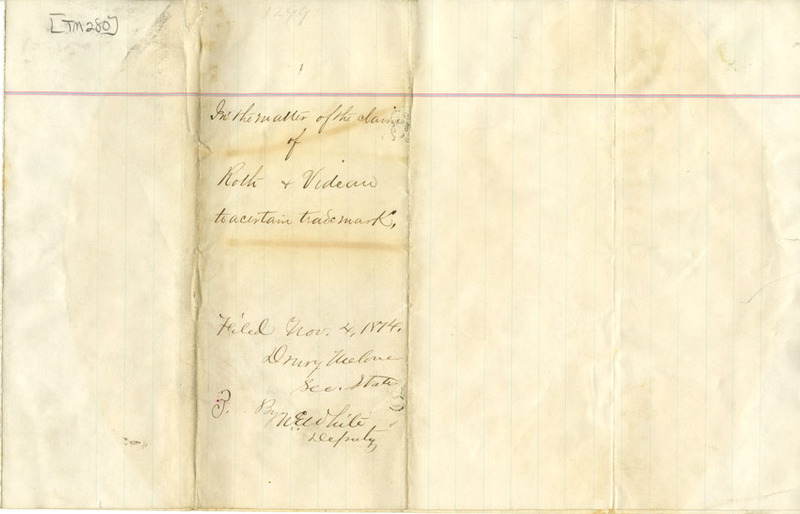 [TM280]
1299
In the matter of the claim
of
Roth & Videau
to a certain trade mark.
Filed Nov. 4, 1874.
Drury Melone
Sec. State
By W.E. White
Deputy